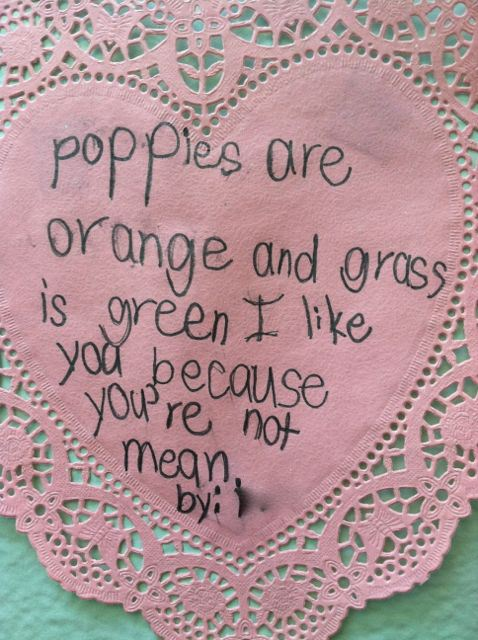 poppies are
orange and grass
is green I like
you because
you're not
mean.
by: